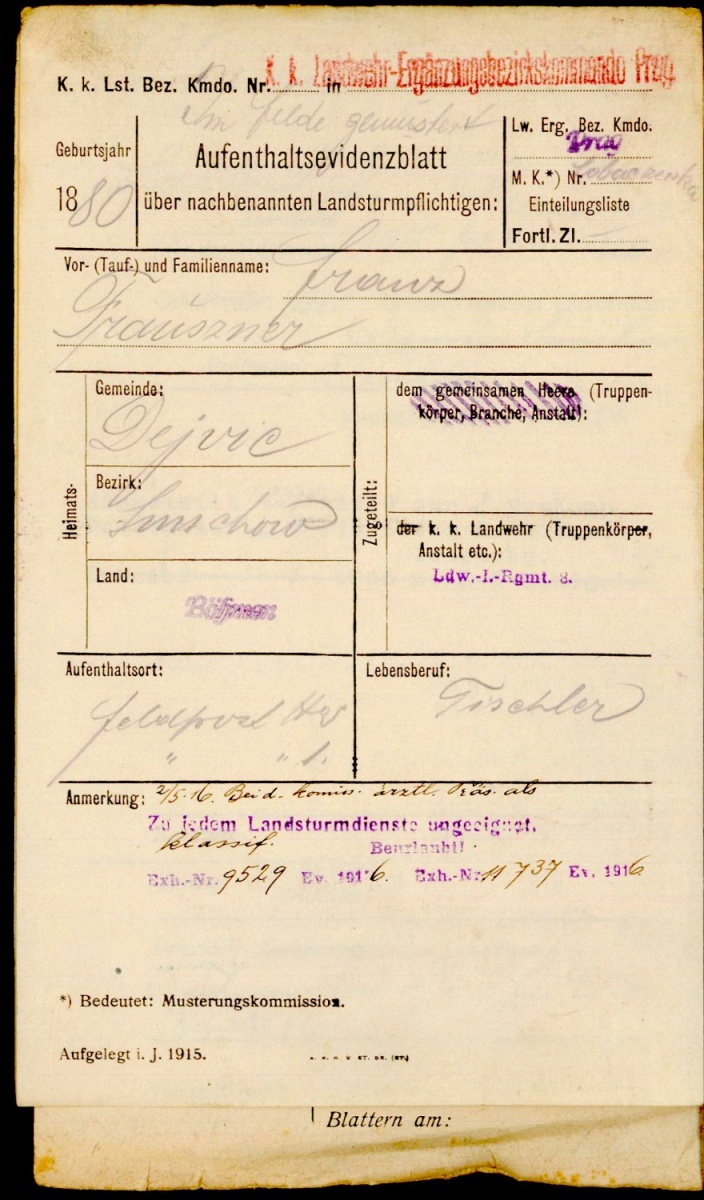 K. k. Lst. Bez. Kmdo. Nr. in K. k. Landwehr-Ergänzungsbezirkskommando Prag
Im Felde gemustert
Geburtsjahr
1880
Aufenthaltsevidenzblatt
über nachbenannten Landsturmpflichtigen:
Lw. Erg. Bez. Kmdo.
Prag
M. K.*) Nr.
Einteilungsliste
Fortl. Zl.
Vor- (Tauf-) und Familienname: Franz
Trauszner
Heimats-
Gemeinde:
Dejvic
Bezirk:
Smichow
Land:
Böhmen
Zugeteilt:
dem gemeinsamen Heere (Truppen-
körper, Branche, Anstalt):
der k. k. Landwehr (Truppenkörper,
Anstalt etc.):
Ldw.-I.-Rgmt. 8.
Aufenthaltsort:
Feldpost
" " 1.
Lebensberuf:
Tischler
Anmerkung: 2/5.16. Bei d. komiss. ärztl. Präs. als
Zu jedem Landsturmdienste ungeeignet.
klassif. Beurlaubt!
Exh.-Nr. 9529 Ev. 1916. Exh.-Nr. 11737 Ev. 1916
*) Bedeutet: Musterungskommission.
Aufgelegt i. J. 1915.
Blattern am: